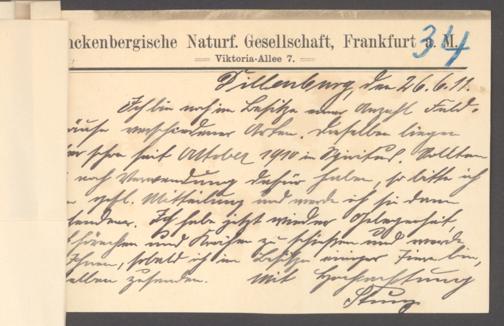 nckenbergische Naturf. Gesellschaft, Frankfurt a. M.
34
Viktoria-Allee 7.
Dillenburg, den 26.6.11.
Ich bin noch im Besitze einer Anzahl Feld-
mäuse verschiedener Arten. Dieselben liegen
schon seit Oktober 1910 in Spiritus. Sollten
noch Verwendung dafür haben, so bitte ich
gefl. Mitteilung und werde ich sie dann
senden. Ich habe jetzt wieder Gelegenheit
und Krähen zu schießen und werde
Ihnen, sobald ich im Besitze einiger bin,
zusenden. Mit Hochachtung